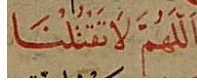 اَللّٰهُمَّ لَا تَقْتُلْنَا